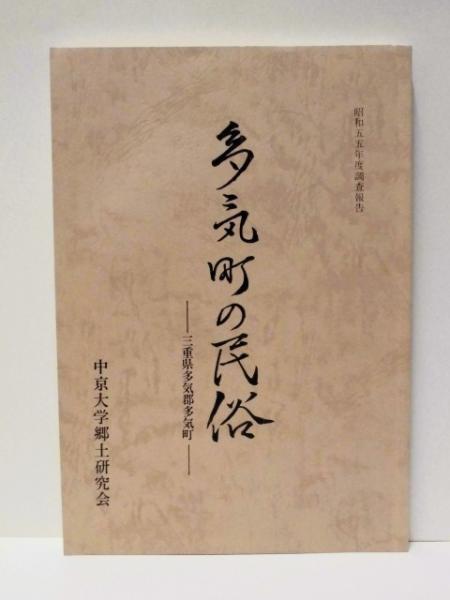 昭和五五年度調査報告
多気町の民俗
――三重県多気郡多気町――
中京大学郷土研究会